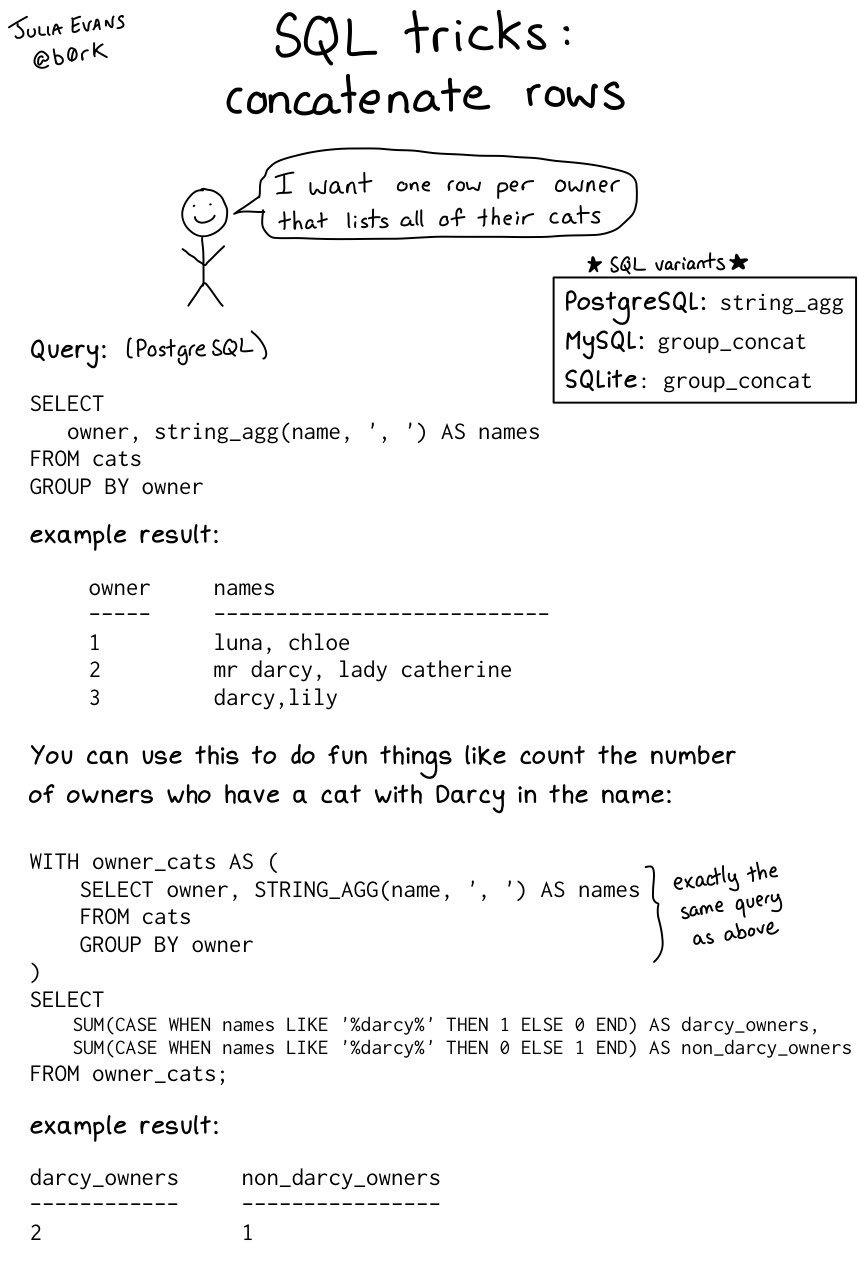 JULIA EVANS
@b0rk
SQL tricks:
concatenate rows
I want one row per owner
that lists all of their cats
★ SQL variants ★
PostgreSQL: string_agg
MySQL: group_concat
SQLite: group_concat
Query: (PostgreSQL)
SELECT
owner, string_agg(name, ', ') AS names
FROM cats
GROUP BY owner
example result:
owner names
----- ---------------------------
1 luna, chloe
2 mr darcy, lady catherine
3 darcy,lily
You can use this to do fun things like count the number
of owners who have a cat with Darcy in the name:
WITH owner_cats AS (
SELECT owner, STRING_AGG(name, ', ') AS names
FROM cats
GROUP BY owner
)
exactly the
same query
as above
SELECT
SUM(CASE WHEN names LIKE '%darcy%' THEN 1 ELSE 0 END) AS darcy_owners,
SUM(CASE WHEN names LIKE '%darcy%' THEN 0 ELSE 1 END) AS non_darcy_owners
FROM owner_cats;
example result:
darcy_owners non_darcy_owners
------------ ----------------
2 1